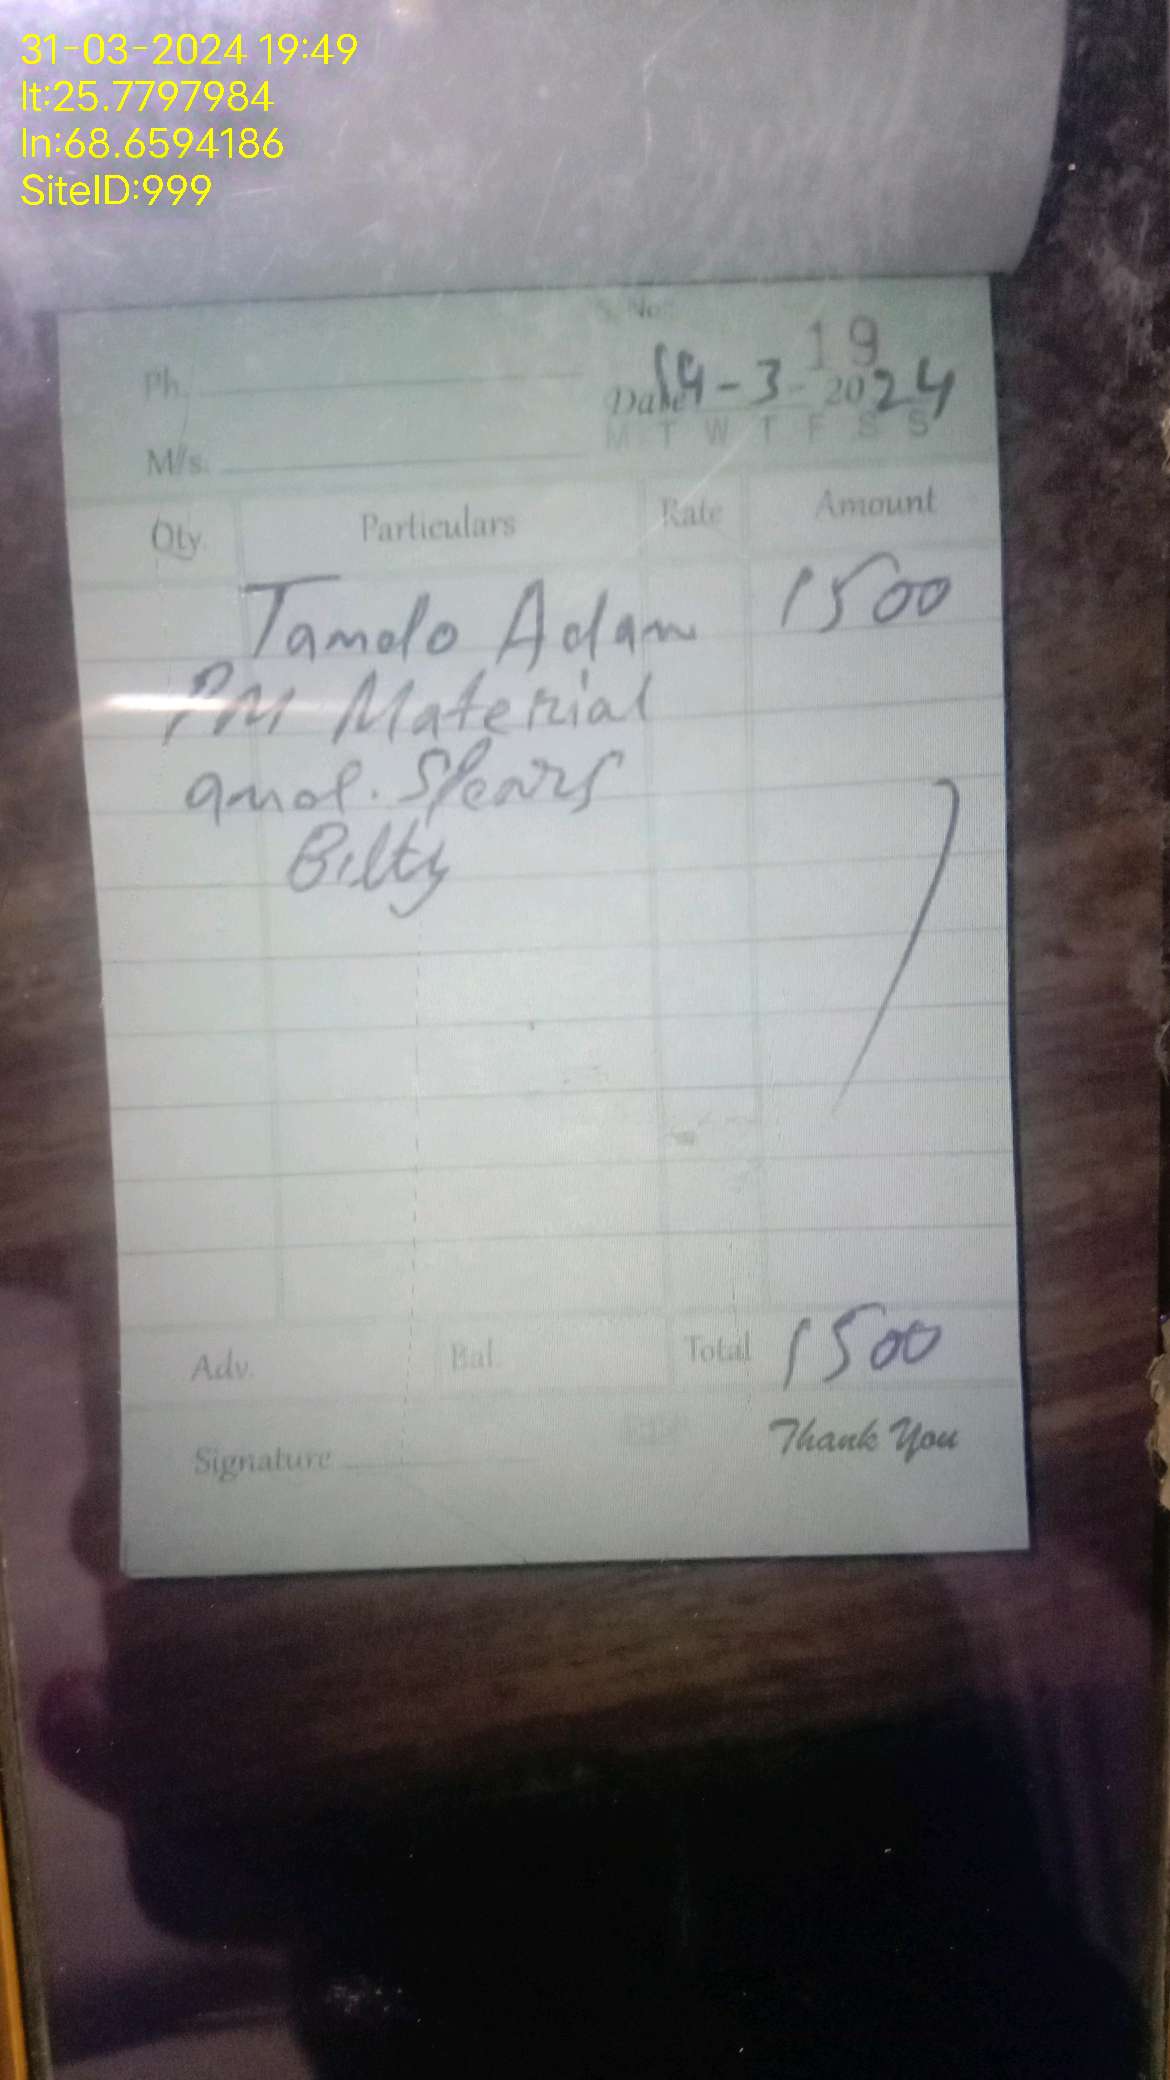 31-03-2024 19:49
lt:25.7797984
ln:68.6594186
SiteID:999
S. No.
19
Ph.
Date 14-3-2024
M T W T F S S
M/s.
Qty. Particulars Rate Amount
Tando Adam 1500
PM Material
and. Spears
Bilty
Adv. Bal. Total 1500
Thank You
Signature